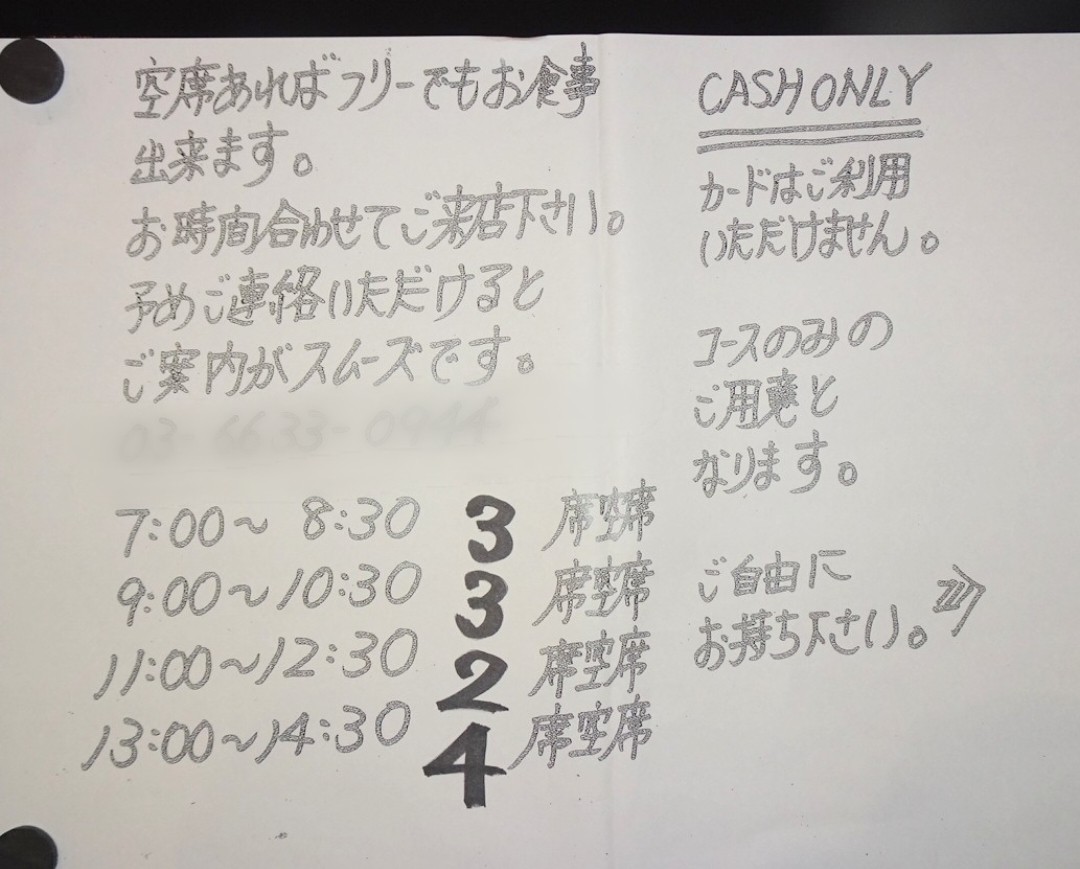 空席あればフリーでもお食事
出来ます。
お時間合わせてご来店下さい。
予めご連絡いただけると
ご案内がスムーズです。
7:00〜 8:30 3 席空席
9:00〜10:30 3 席空席
11:00〜12:30 2 席空席
13:00〜14:30 4 席空席
CASH ONLY
カードはご利用
いただけません。
コースのみの
ご用意と
なります。
ご自由に
お持ち下さい。